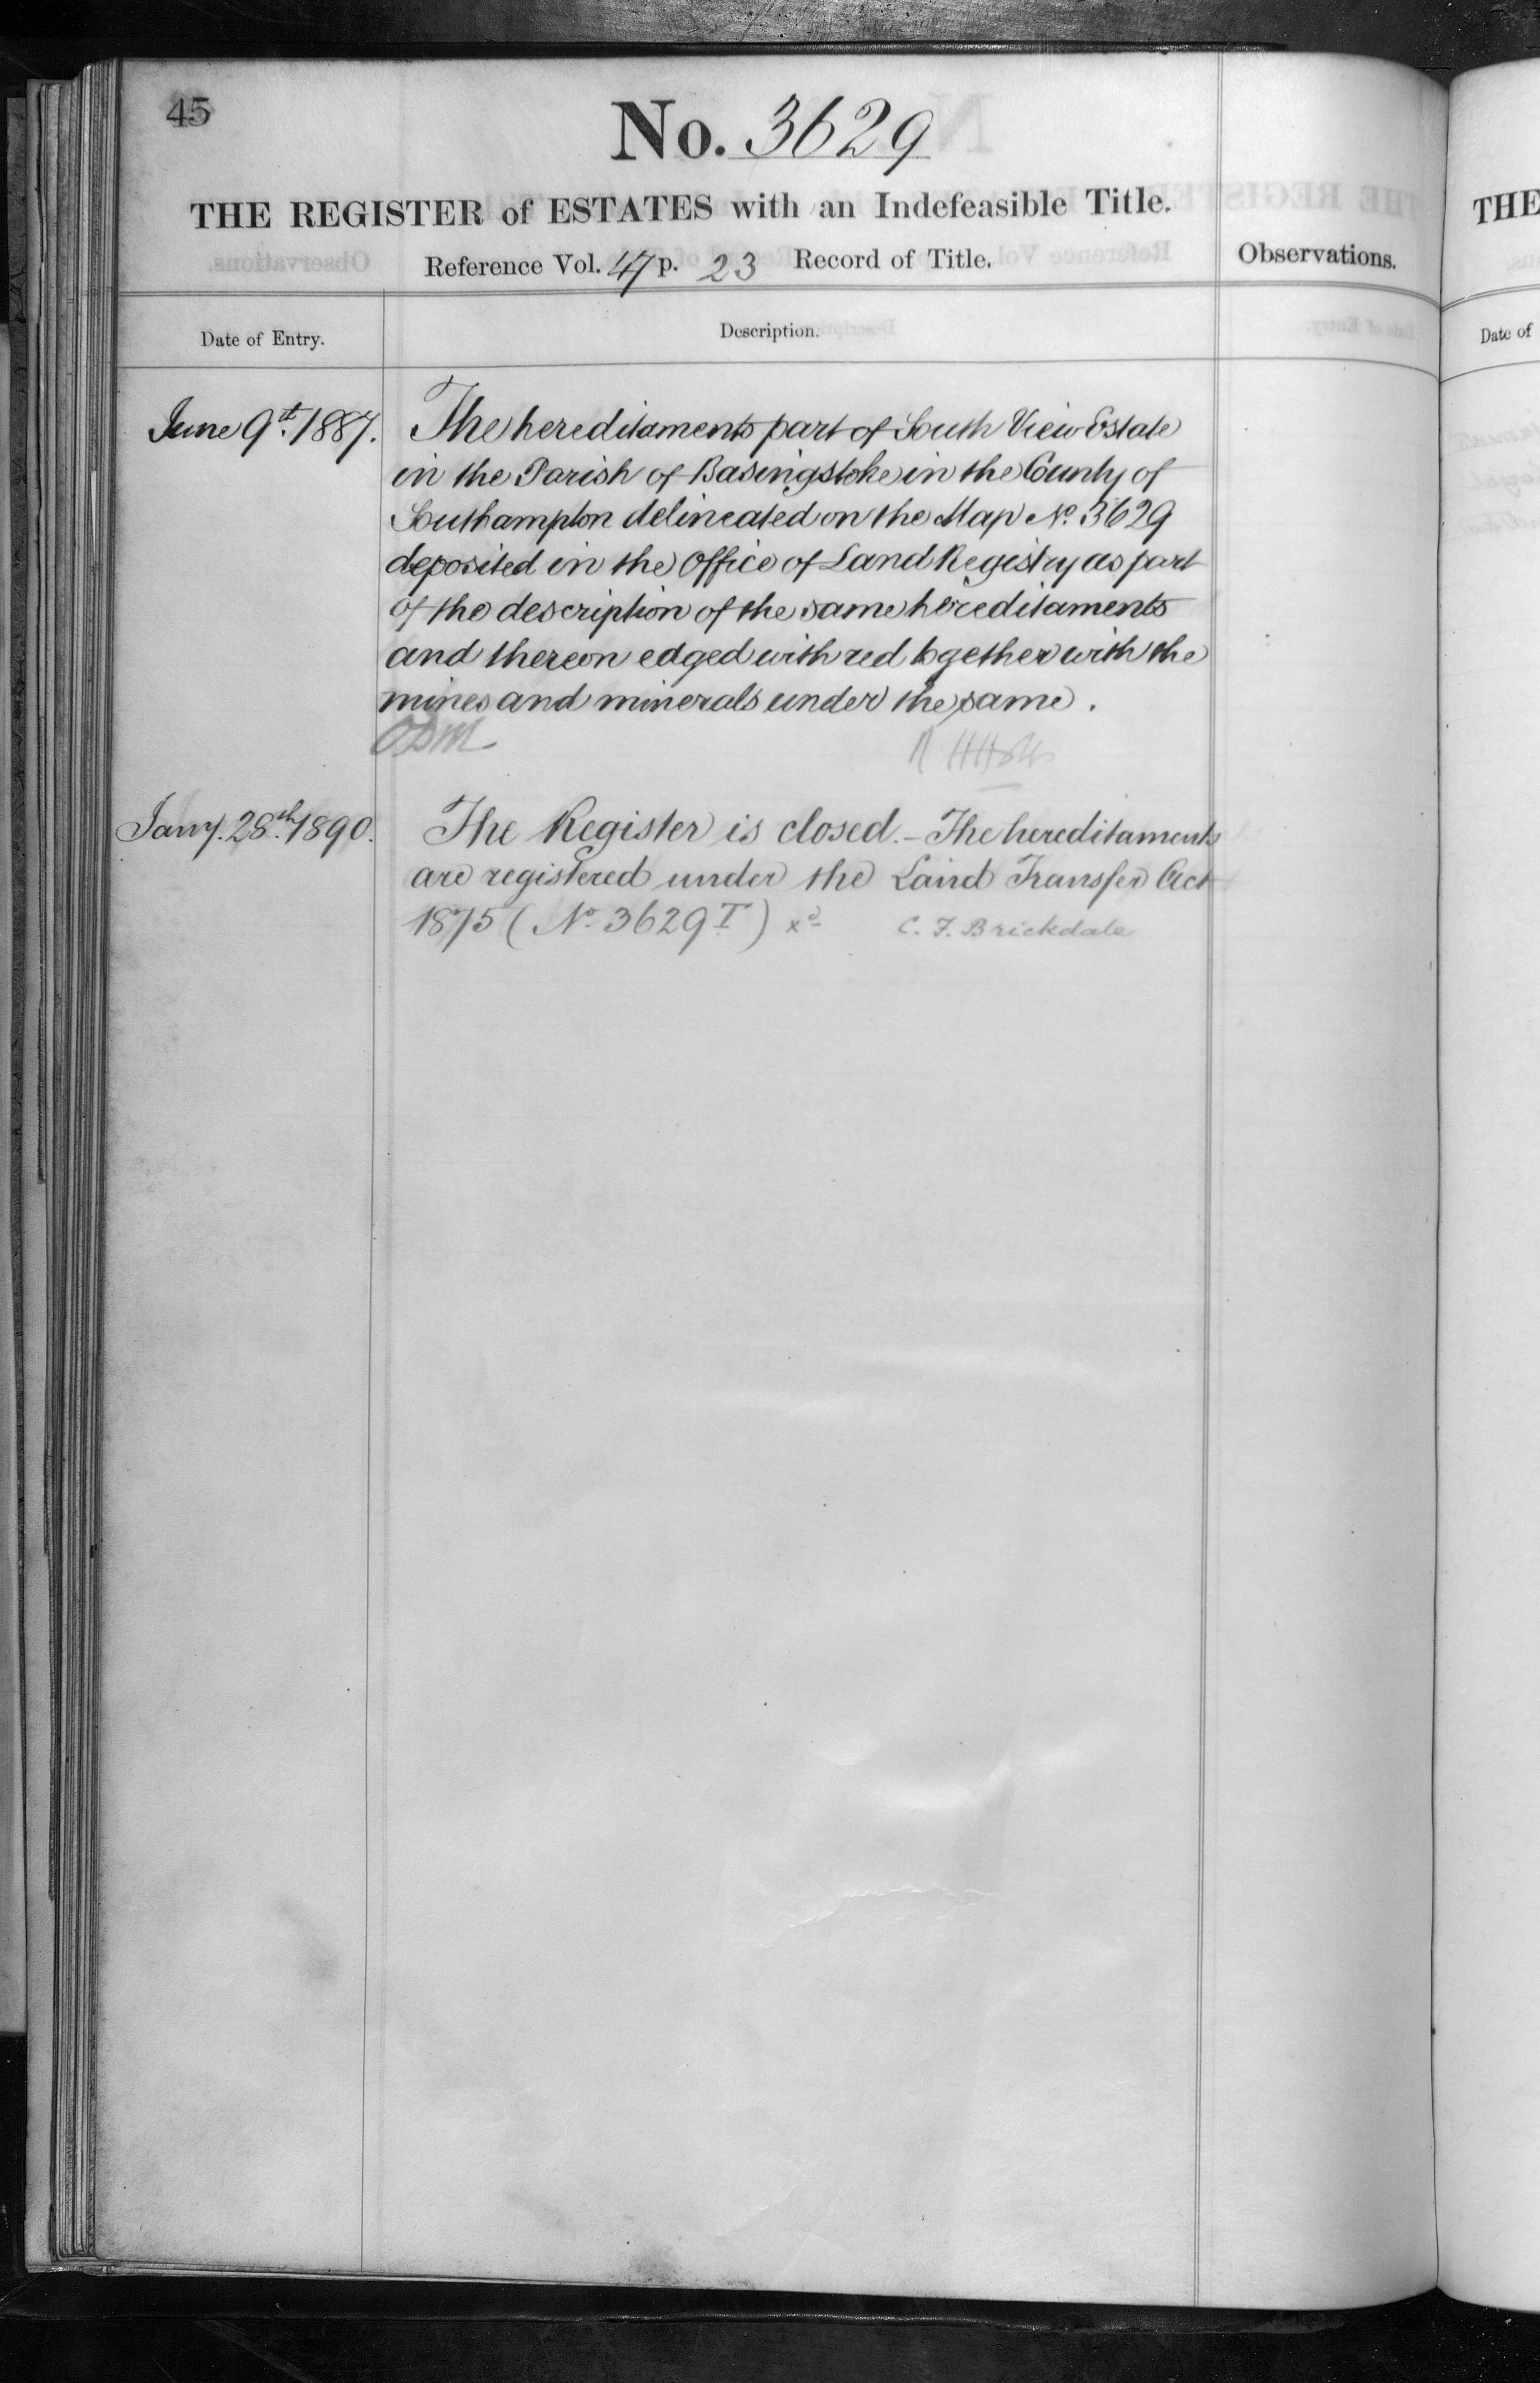 45
No. 3629
THE REGISTER of ESTATES with an Indefeasible Title.
Reference Vol. 47 p. 23 Record of Title.
Observations.
Date of Entry.
Description.
June 9th. 1887.
The hereditaments part of South View Estate
in the Parish of Basingstoke in the County of
Southampton delineated on the Map No. 3629
deposited in the Office of Land Registry as part
of the description of the same hereditaments
and thereon edged with red together with the
mines and minerals under the same.
Jany. 28th. 1890.
The Register is closed. – The hereditaments
are registered under the Land Transfer Act
1875 (No. 3629 T) xd
C. F. Brickdale
THE
Date of